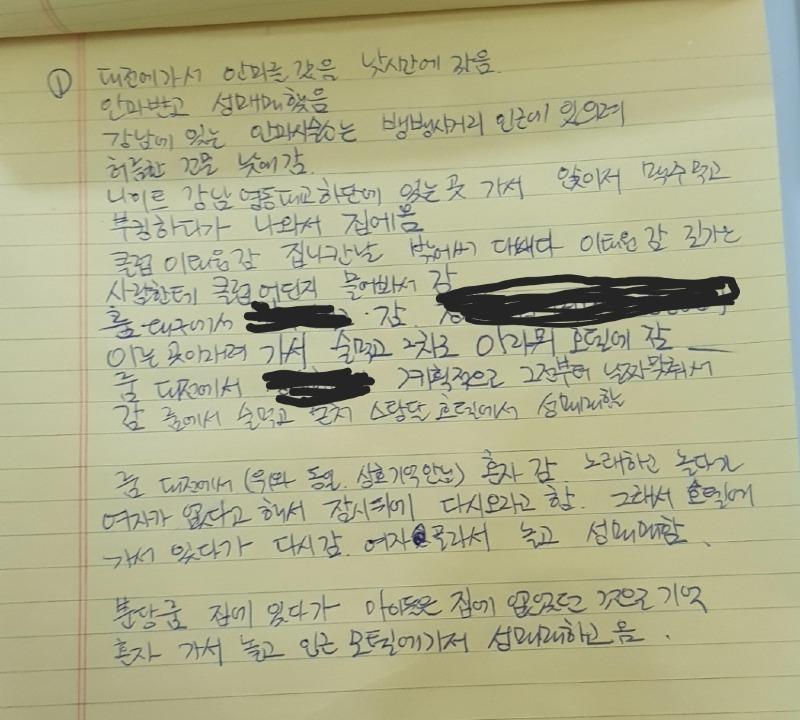 ① 대전에가서 안마를 갔음 낮시간에 갔음.
안마받고 성매매했음
강남에 있는 안마시술소는 뱅뱅사거리 인근에 있으며
허름한 건물 낮에감.
나이트 강남 영동대교하단에 있는 곳 가서 앉아서 맥주먹고
부킹하다가 나와서 집에옴
클럽 이태원감 집나간날 밖에서 다 이태원 감 길가는
사람한테 클럽 어딘지 물어봐서 감
룸. 대구에서 감.
아는 곳이라며 가서 술먹고 2차로 모텔에 감
룸 대전에서 계획적으로 그전부터 날짜맞춰서
감 룸에서 술먹고 근처 스탕달 호텔에서 성매매함
룸 대전에서 (위와 동일. 상호기억안남) 혼자 감 노래하고 놀다가
여자가 없다고 해서 잠시뒤에 다시오라고 함. 그래서 호텔에
가서 있다가 다시감. 여자 골라서 놀고 성매매함.
분당룸 집에 있다가 아이들은 집에 없었던 것으로 기억
혼자 가서 놀고 인근 모텔에가서 성매매하고 옴.